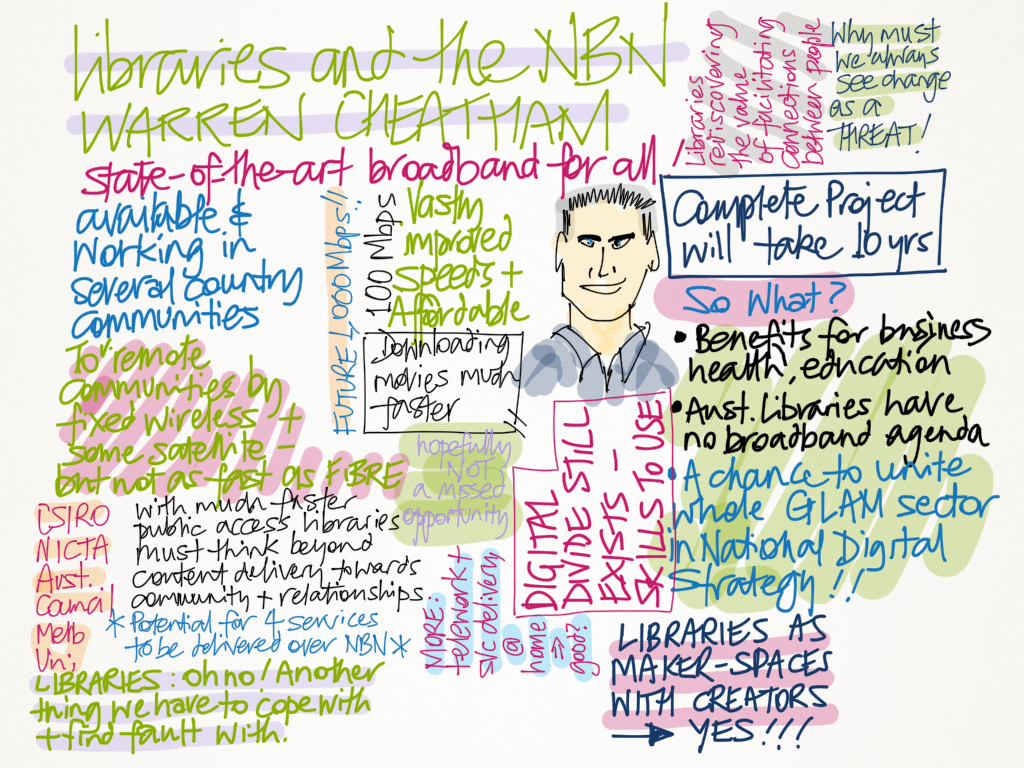 Libraries and the NBN
WARREN CHEATHAM
state-of-the-art broadband for all!
Libraries
rediscovering
the value
of facilitating
connections
between people
Why must
we always
see change
as a
THREAT!
available &
working in
several country
communities
FUTURE 1,000Mbps!!
100 Mbps
Vastly
improved
speeds +
Affordable
Downloading
movies much
faster
Complete Project
will take 10 yrs
So What?
• Benefits for business
health, education
• Aust. Libraries have
no broadband agenda
• A chance to unite
whole GLAM sector
in National Digital
Strategy!!
To remote
communities by
fixed wireless +
some satellite -
but not as fast as FIBRE
hopefully
NOT
a missed
opportunity
DIGITAL
DIVIDE STILL
EXISTS -
SKILLS TO USE
CSIRO
NICTA
Aust.
Council
Melb
Uni,
with much faster
public access, libraries
must think beyond
content delivery towards
community + relationships.
* Potential for 4 services
to be delivered over NBN *
MORE:
telework +
svc delivery
@
home
=>
good?
LIBRARIES: oh no! Another
thing we have to cope with
+ find fault with.
LIBRARIES AS
MAKER-SPACES
WITH CREATORS
→ YES!!!